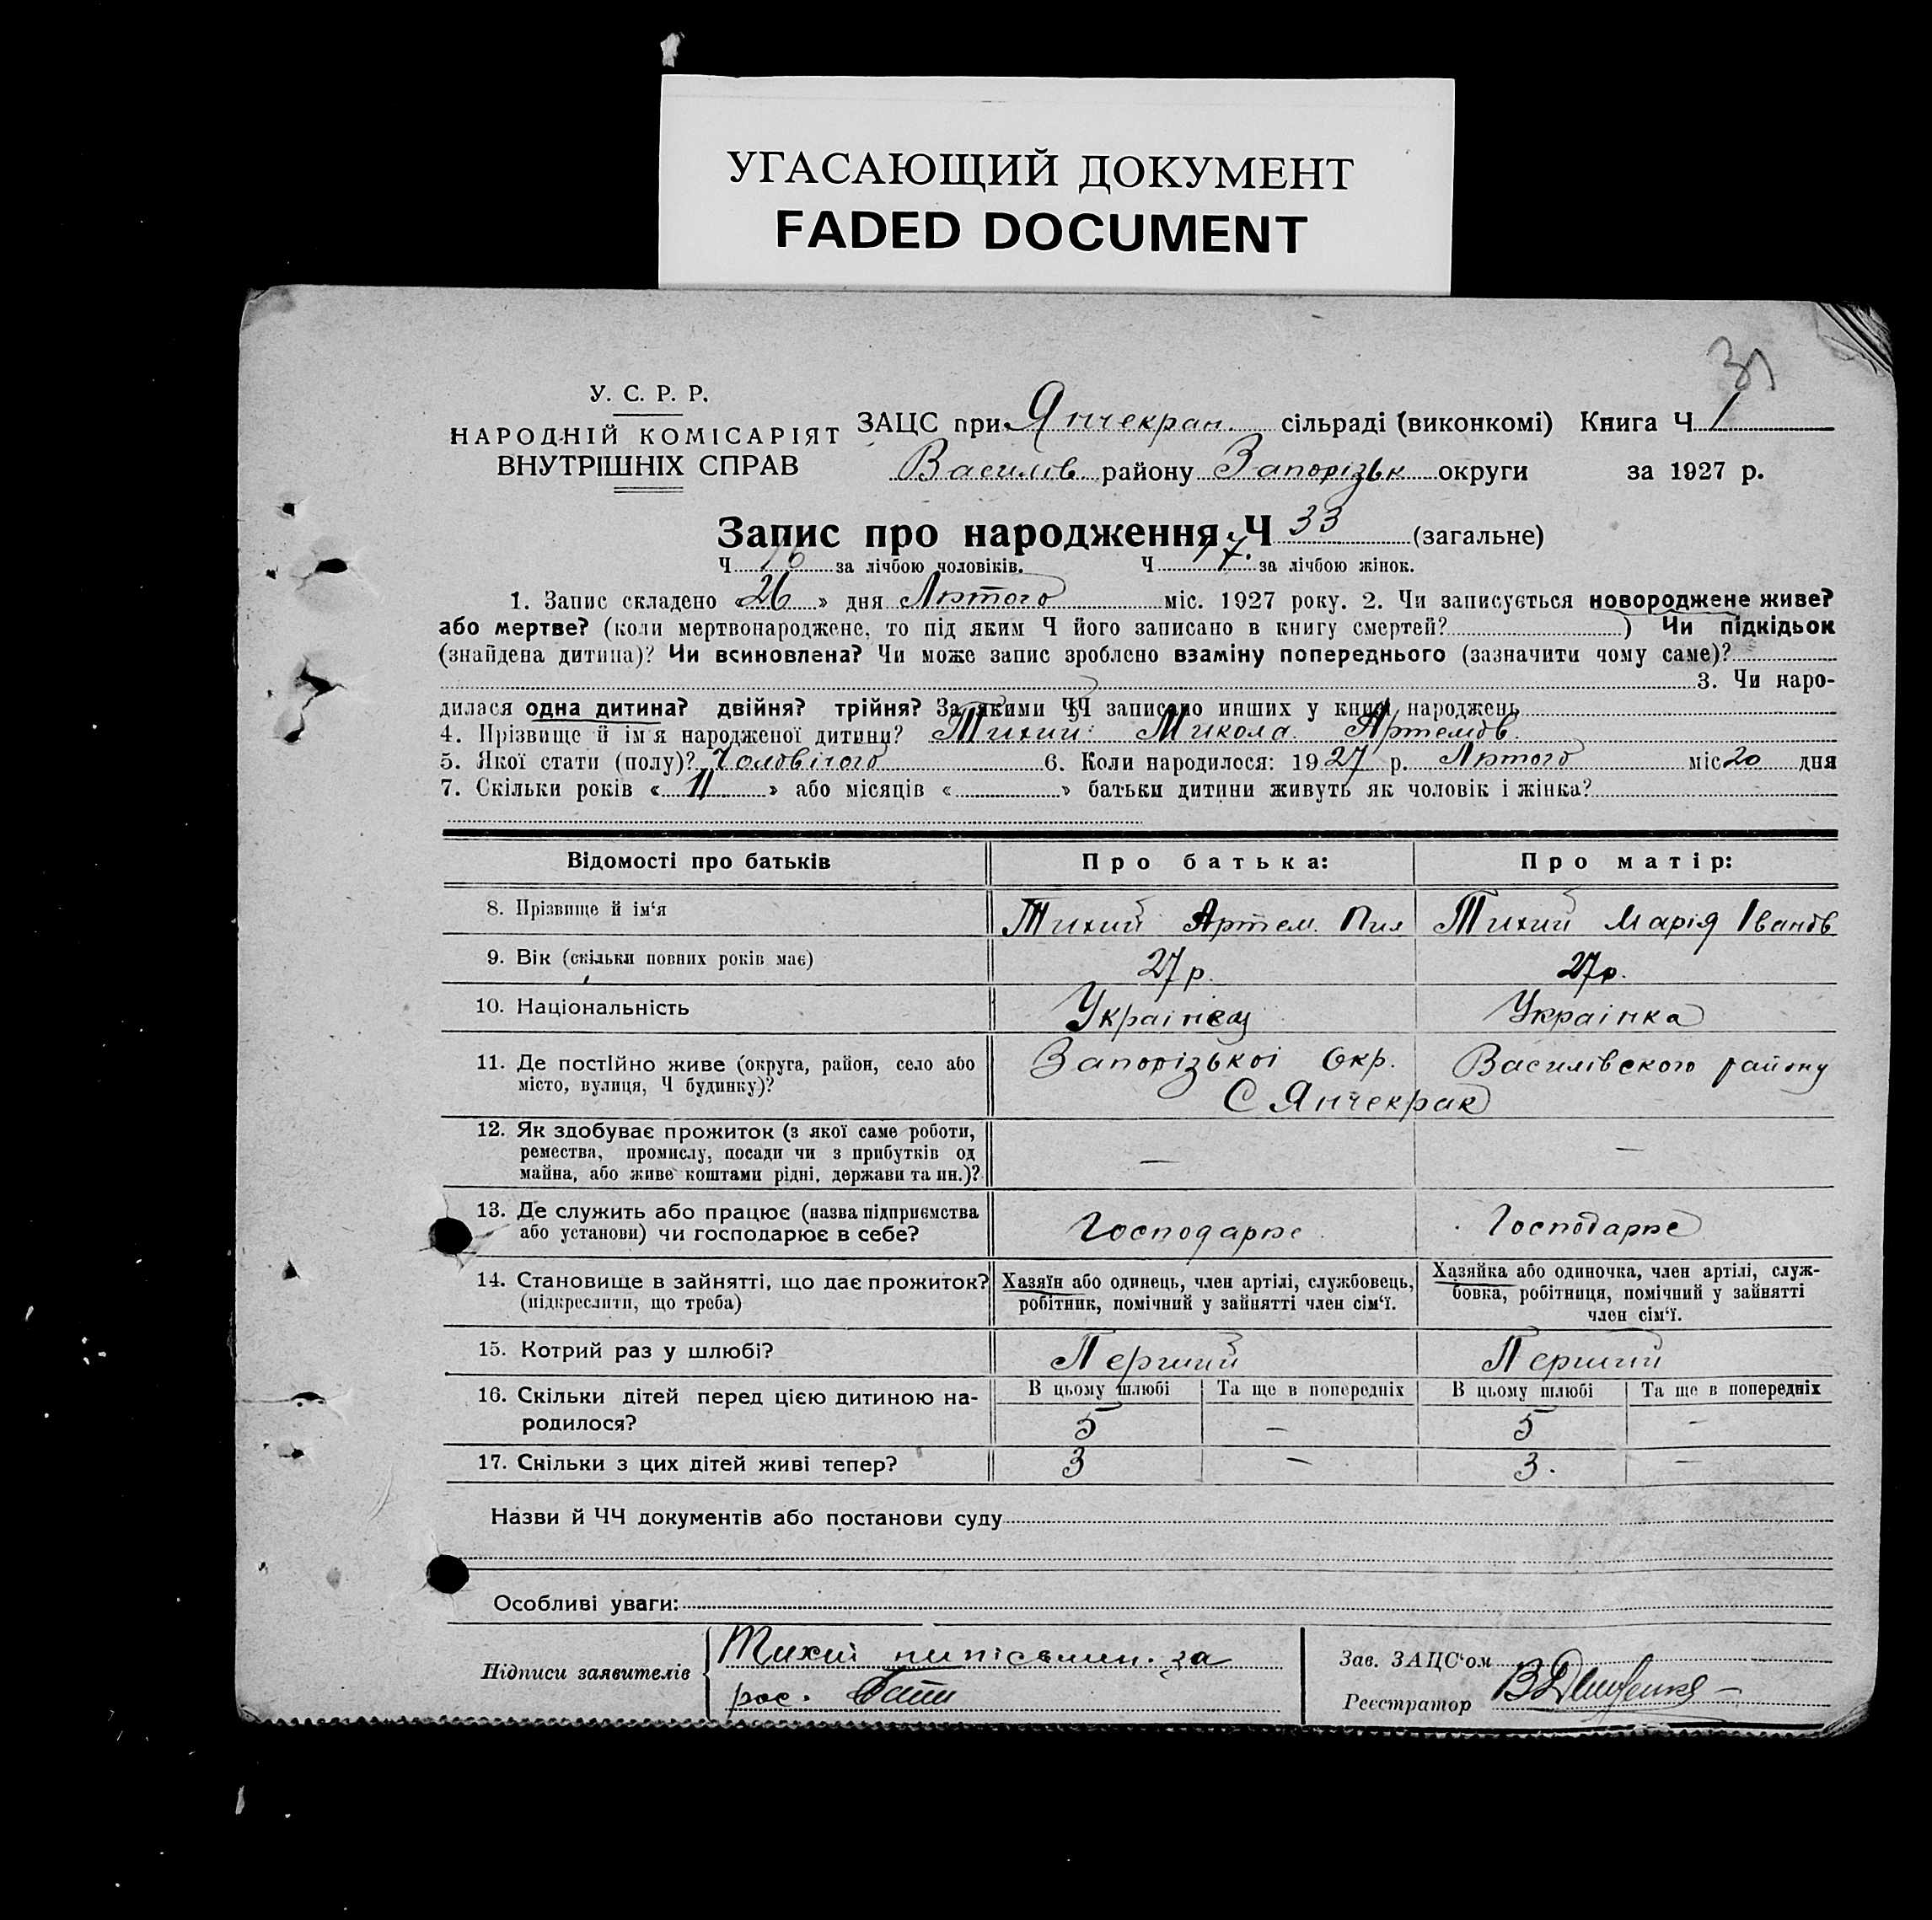 УГАСАЮЩИЙ ДОКУМЕНТ
FADED DOCUMENT
У. С. Р. Р.
НАРОДНІЙ КОМІСАРІЯТ
ВНУТРІШНІХ СПРАВ
ЗАЦС при Янчекрак. сільраді (виконкомі) Книга Ч 1
Василів району Запорізьк округи за 1927 р.
Запис про народження Ч 33 (загальне)
Ч 16 за лічбою чоловіків. Ч 17. за лічбою жінок.
1. Запис складено «26» дня Лютого міс. 1927 року. 2. Чи записується новороджене живе?
або мертве? (коли мертвонароджене, то під яким Ч його записано в книгу смертей?) Чи підкідьок
(знайдена дитина)? Чи всиновлена? Чи може запис зроблено взаміну попереднього (зазначити чому саме)?
3. Чи наро-
дилася одна дитина? двійня? трійня? За якими ЧЧ записано инших у книзі народжень
4. Прізвище й ім'я народженої дитини? Тихий Микола Артемов.
5. Якої стати (полу)? Чоловічого 6. Коли народилося: 1927 р. Лютого міс 20 дня
7. Скільки років «11» або місяців « » батьки дитини живуть як чоловік і жінка?
Відомості про батьків Про батька: Про матір:
8. Прізвище й ім'я Тихий Артем. Пил Тихий Марія Іванов
9. Вік (скільки повних років має) 27 р. 27 р.
10. Національність Украінец Украінка
11. Де постійно живе (округа, район, село або Запорізькоі Окр. Василівского району
місто, вулиця, Ч будинку)? С Янчекрак
12. Як здобуває прожиток (з якої саме роботи,
ремества, промислу, посади чи з прибутків од
майна, або живе коштами рідні, держави та ин.)? — —
13. Де служить або працює (назва підприємства
або установи) чи господарює в себе? Господарює Господарює
14. Становище в зайнятті, що дає прожиток? Хазяїн або одинець, член артілі, службовець, Хазяйка або одиночка, член артілі, служ-
(підкреслити, що треба) робітник, помічний у зайнятті член сім'ї. бовка, робітниця, помічний у зайнятті
член сім'ї.
15. Котрий раз у шлюбі? Перший Перший
16. Скільки дітей перед цією дитиною на- В цьому шлюбі Та ще в попередніх В цьому шлюбі Та ще в попередніх
родилося? 5 — 5 -
17. Скільки з цих дітей живі тепер? 3 — 3. —
Назви й ЧЧ документів або постанови суду
Особливі уваги:
Підписи заявителів Тихий за Зав. ЗАЦС'ом
рос. Реєстратор